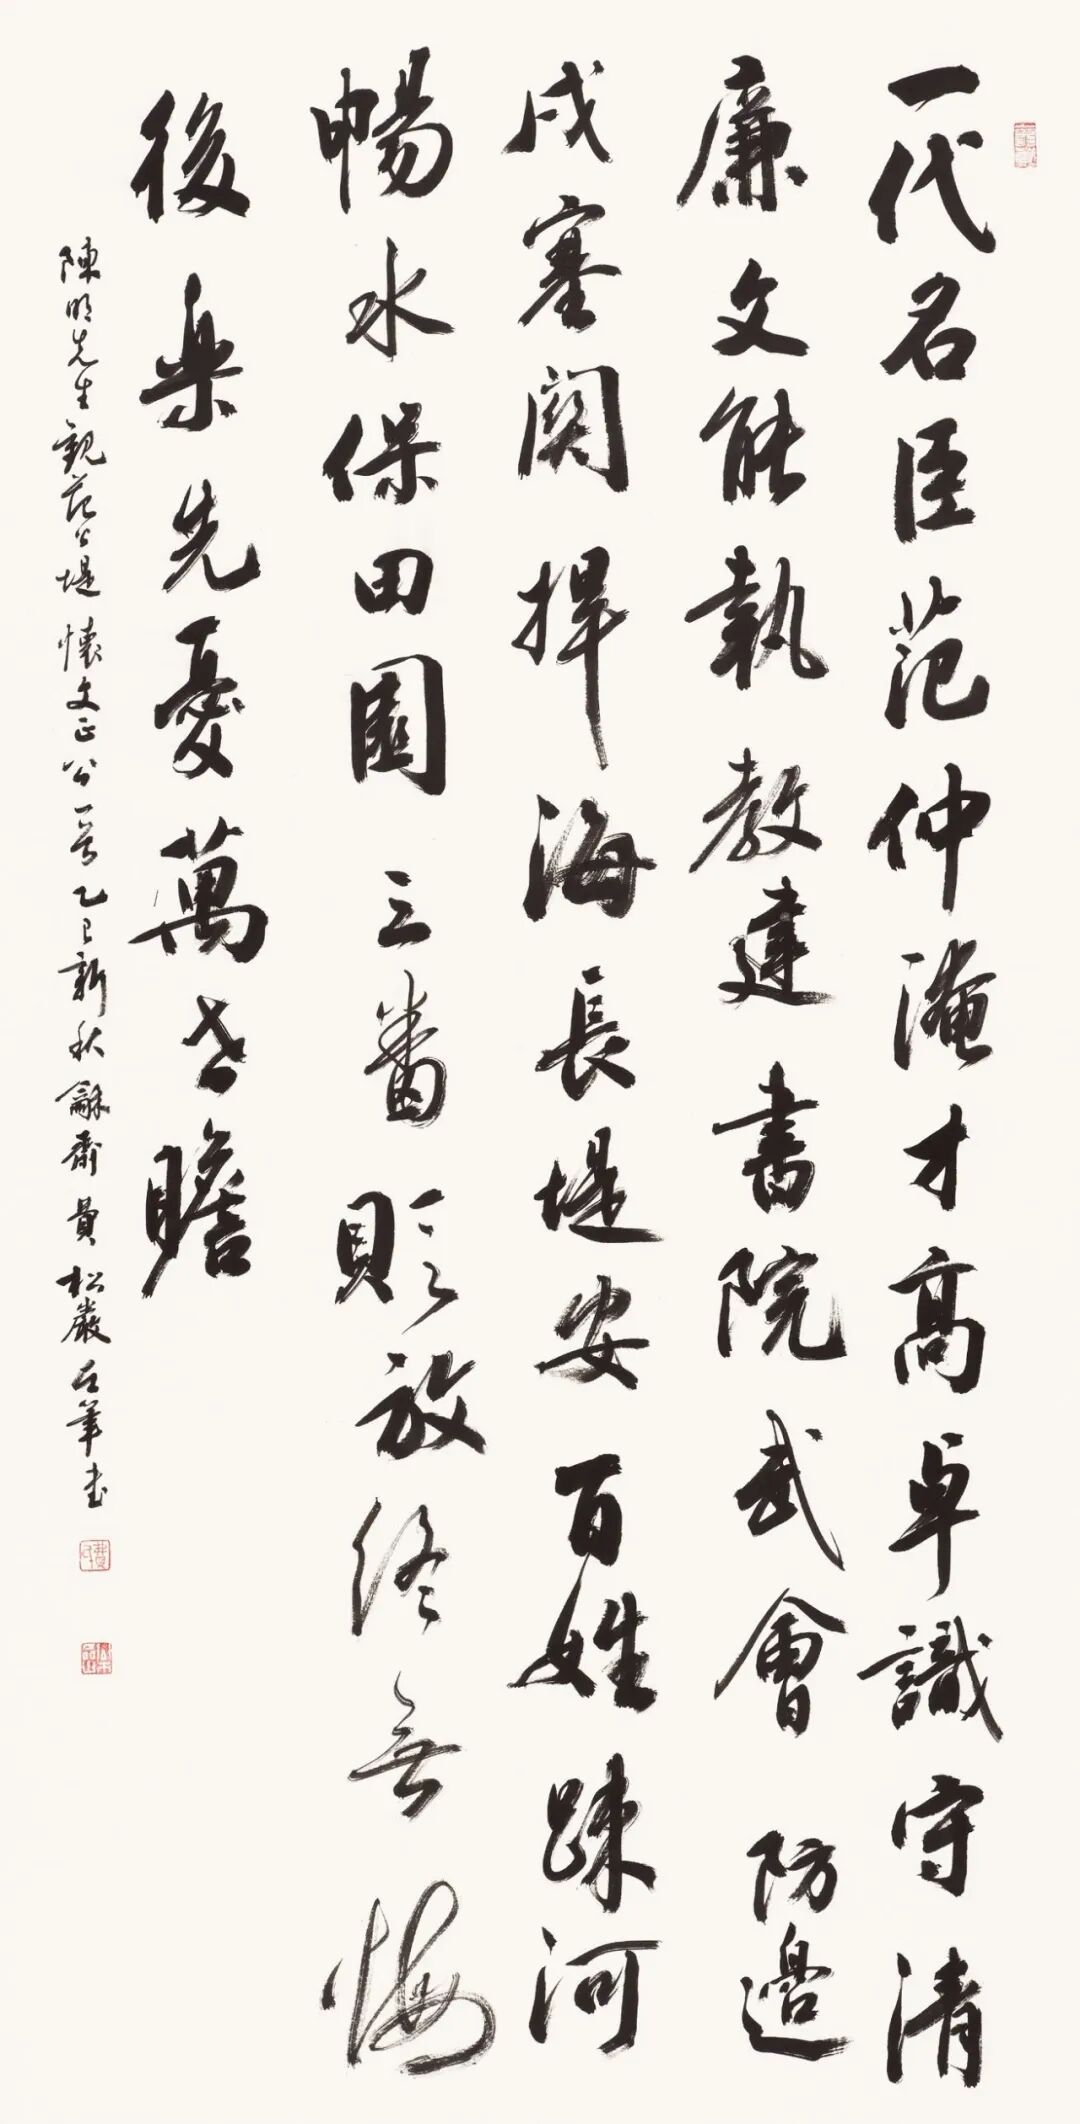 一代名臣范仲淹才高卓識守清
廉文能執教建書院武會防邊
戍塞関捍海長堤安百姓踈河
暢水保田園三番貶放終無悔
後樂先憂萬古瞻
陳明先生觀范公堤懷文正公一首乙巳新秋龢齋費松巖左筆書